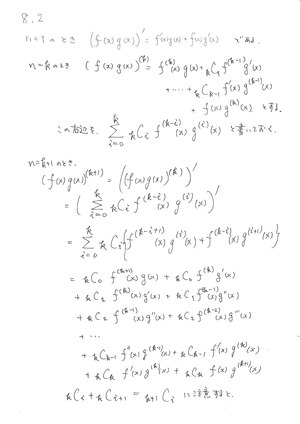 8.2
n=1 のとき (f(x)g(x))' = f'(x)g(x)+f(x)g'(x) である.
n=kのとき (f(x)g(x))^{(k)} = f^{(k)}(x)g(x) + _kC_1 f^{(k-1)}(x)g'(x)
+ ⋯⋯ + _kC_{k-1} f'(x)g^{(k-1)}(x)
+ f(x)g^{(k)}(x) とする.
この右辺を, \sum_{i=0}^{k} _kC_i f^{(k-i)}(x) g^{(i)}(x) と書いておく.
n=k+1のとき,
(f(x)g(x))^{(k+1)} = ((f(x)g(x))^{(k)})'
= ( \sum_{i=0}^{k} _kC_i f^{(k-i)}(x) g^{(i)}(x) )'
= \sum_{i=0}^{k} _kC_i { f^{(k-i+1)}(x) g^{(i)}(x) + f^{(k-i)}(x) g^{(i+1)}(x) }
= _kC_0 f^{(k+1)}(x) g(x) + _kC_0 f^{(k)}(x) g'(x)
+ _kC_1 f^{(k)}(x) g'(x) + _kC_1 f^{(k-1)}(x) g''(x)
+ _kC_2 f^{(k-1)}(x) g''(x) + _kC_2 f^{(k-2)}(x) g'''(x)
+ ⋯
+ _kC_{k-1} f''(x) g^{(k-1)}(x) + _kC_{k-1} f'(x) g^{(k)}(x)
+ _kC_k f'(x) g^{(k)}(x) + _kC_k f(x) g^{(k+1)}(x)
_kC_i + _kC_{i+1} = _{k+1}C_i に注意すると,